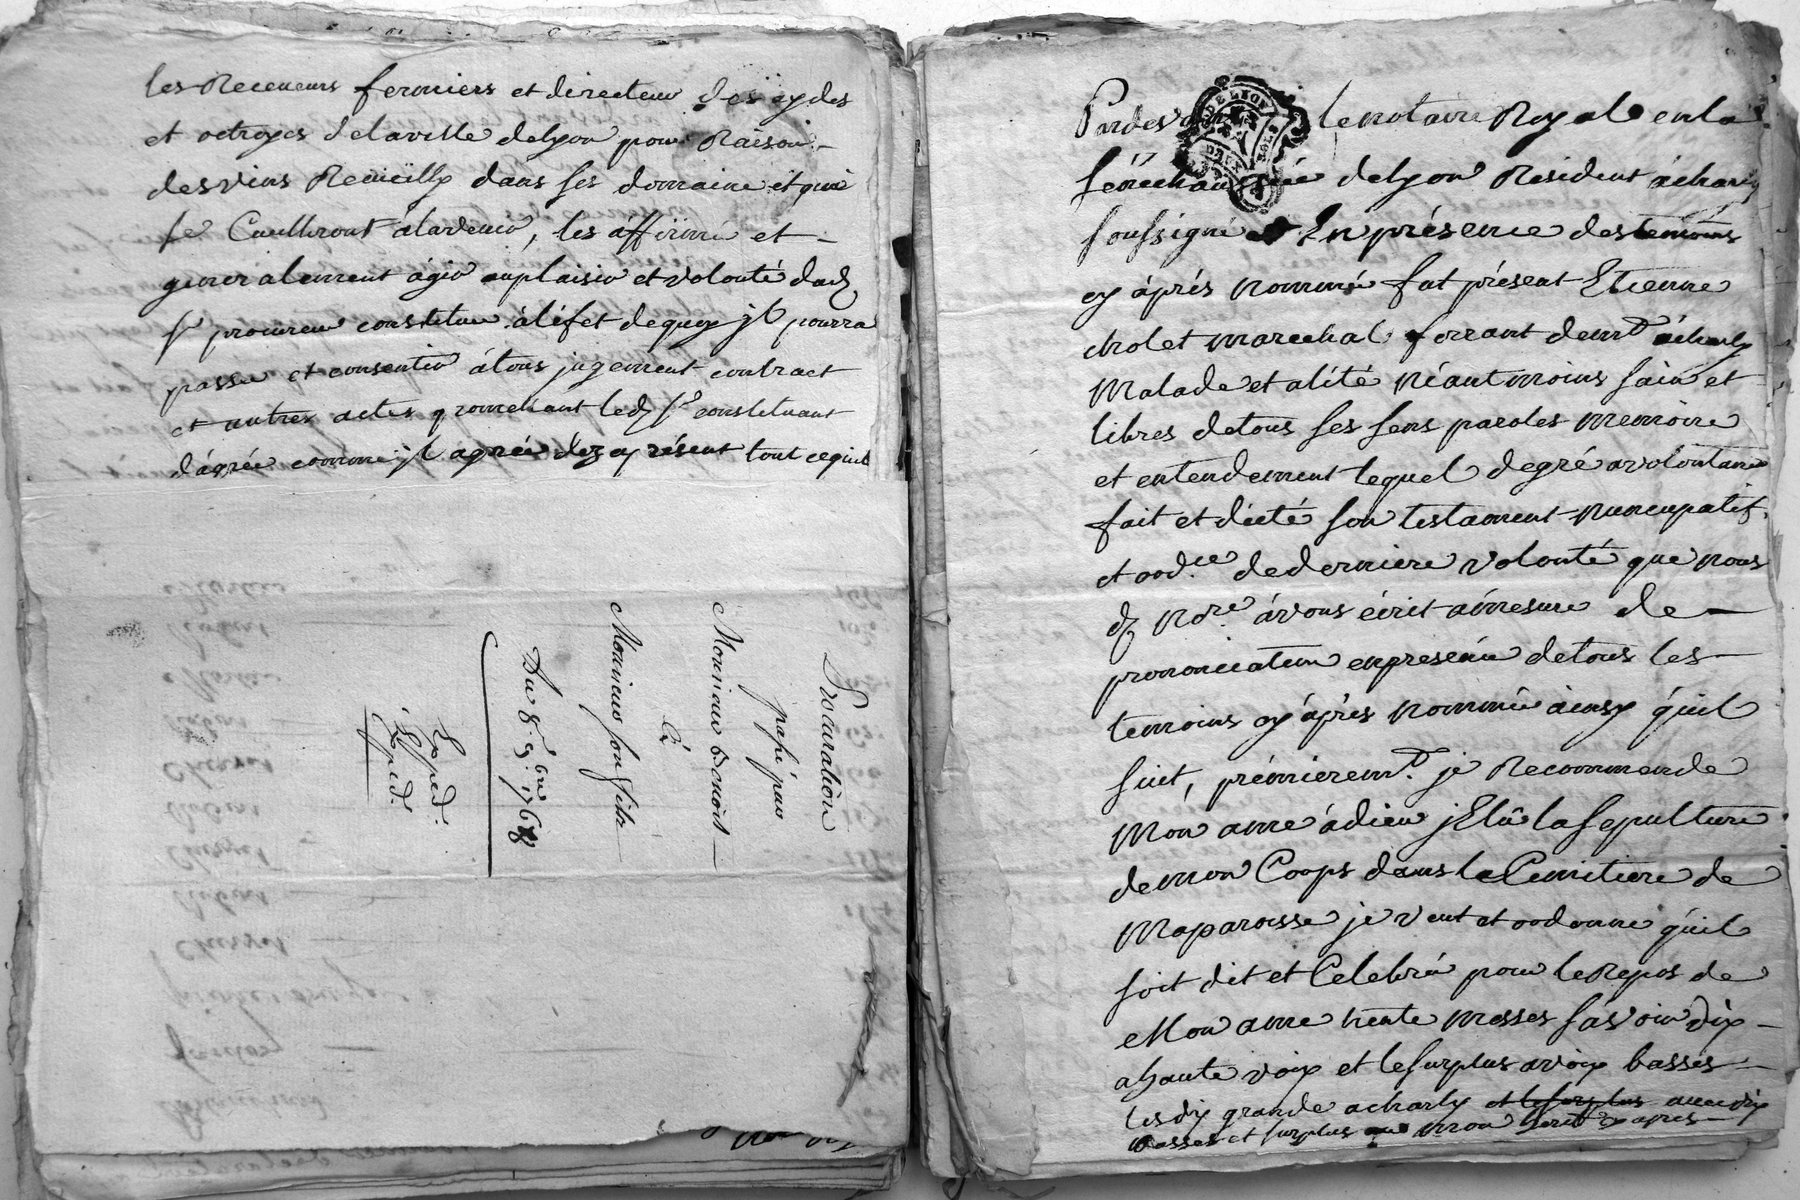 les Receveurs fermiers et directeur des aydes
et octroyes delaville delyon pour Raison
desvins Recüeilly dans ses domaine et qui
se Cuilliront alavenir, les affirmé et
generalement ágir auplaisir et volonté dud.
Sr procureur constitué áléfet dequoy jl pourra
passer et consentir átous jugement contract
et autres actes promettant led. Sr constituant
dágréer comme jl agrée dez aprésent tout cequil
Procuration
passé par
Monsieur Benoit
à
Monsieur son fils
Du 8. 9bre 1768
Exped.
Exped.
Pardevant lenotaire Royal enla
sénéchaussée delyon Résident ácharly
soussigné Enprésence destemoins
cy áprés nommé fut présent Etienne
cholet marechal ferrant demt ácharly
Malade et alité Néantmoins sain et
libres detous ses sens paroles memoire
et entendement lequel degré avolontaire
fait et dicté son testament nuncupatif
et ordre dederniere volonté que nous
d. Nore ávons écrit ámesure de
prononciation enpresence detous les
temoins cy áprés nommé áinsy quil
suit, prémierement je Recommande
Mon ame ádieu jElû lasepulture
demon Corps dans le Cimitiere de
Maparoisse je veut et ordonne quil
soit dit et Celebré pour leRepos de
Mon ame trente messes sávoir dix
ahaute voix et lesurplus avoix basses
lesdix grande acharly et lesurplus avecdix
basses et surplus